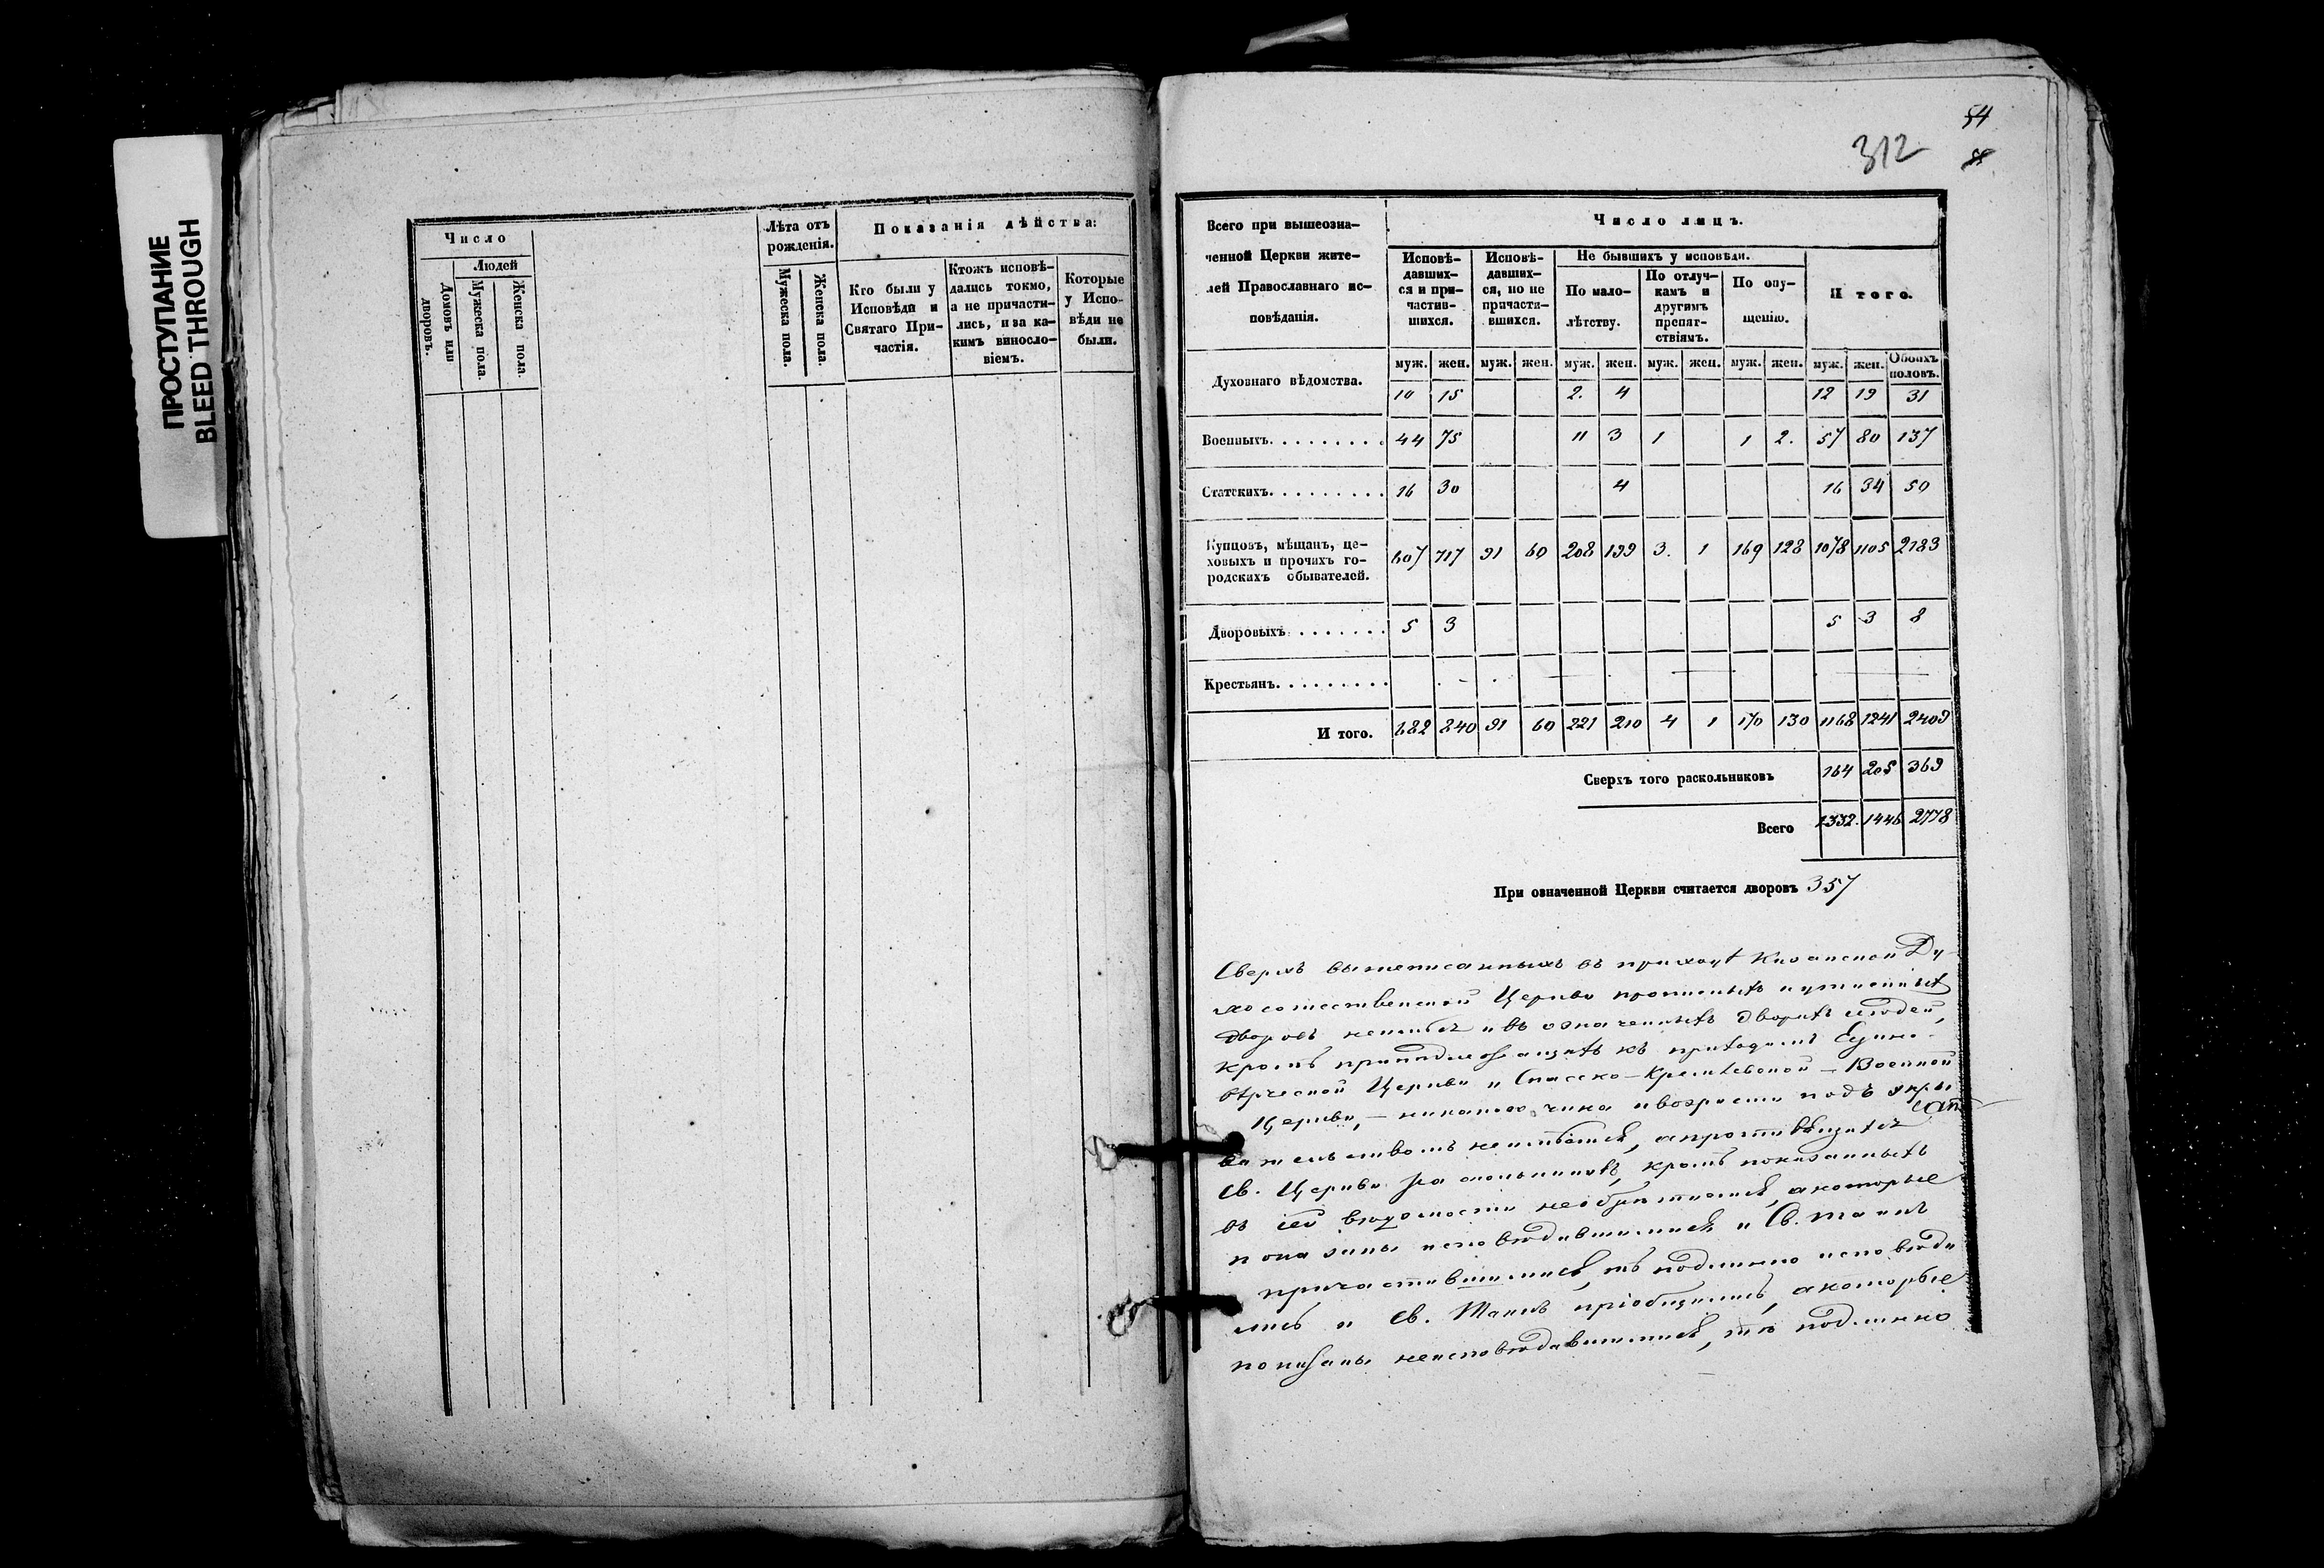 ПРОСТУПАНИЕ
BLEED THROUGH
Число
Людей
Домовъ или дворовъ.
Мужеска пола.
Женска пола.
Лѣта отъ рожденія.
Мужеска пола.
Женска пола.
Показанія дѣйства:
Кто были у Исповѣди и Святаго Причастія.
Ктожъ исповѣдались токмо, а не причастились, и за какимъ винословіемъ.
Которые у Исповѣди не были.
54
312
Всего при вышеозначенной Церкви жителей Православнаго исповѣданія.
Число лицъ.
Исповѣдавшихся и причастившихся.
Исповѣдавшихся, но не причастившихся.
Не бывшихъ у исповѣди.
По малолѣтству.
По отлучкамъ и другимъ препятствіямъ.
По опущенію.
И того.
муж. жен. муж. жен. муж. жен. муж. жен. муж. жен. муж. жен. Обоихъ половъ.
Духовнаго вѣдомства. 10 15 2. 4 12 19 31
Военныхъ. 44 75 11 3 1 1 2. 57 80 137
Статскихъ. 16 30 4 16 34 50
Купцовъ, мѣщанъ, цеховыхъ и прочихъ городскихъ обывателей. 607 717 91 60 208 199 3. 1 169 128 1078 1105 2183
Дворовыхъ 5 3 5 3 8
Крестьянъ.
И того. 682 840 91 60 221 210 4 1 170 130 1168 1241 2409
Сверхъ того раскольниковъ 164 205 369
Всего 1332. 1446 2778
При означенной Церкви считается дворовъ 357
Сверхъ вышеписанныхъ въ приходѣ Казанской Ду-
хосошественской Церкви прописныхъ и утаенныхъ
дворовъ и въ означенныхъ дворахъ людей,
кромѣ принадлежащихъ къ приходамъ Едино-
вѣрческой Церкви и Спасско-Кремлевской - Военной
Церкви, - никакого чина и возраста подъ укры
вательствомъ неимѣется, а противящихся
Св. Церкви раскольниковъ, кромѣ показанныхъ
въ сей вѣдомости а которые
показаны исповѣдавшимися и Св. таинъ
причастившимися, тѣ подлинно исповѣда
лись и Св. Таинъ пріобщились, а которые
показаны неисповѣдавшимися, тѣ подлинно